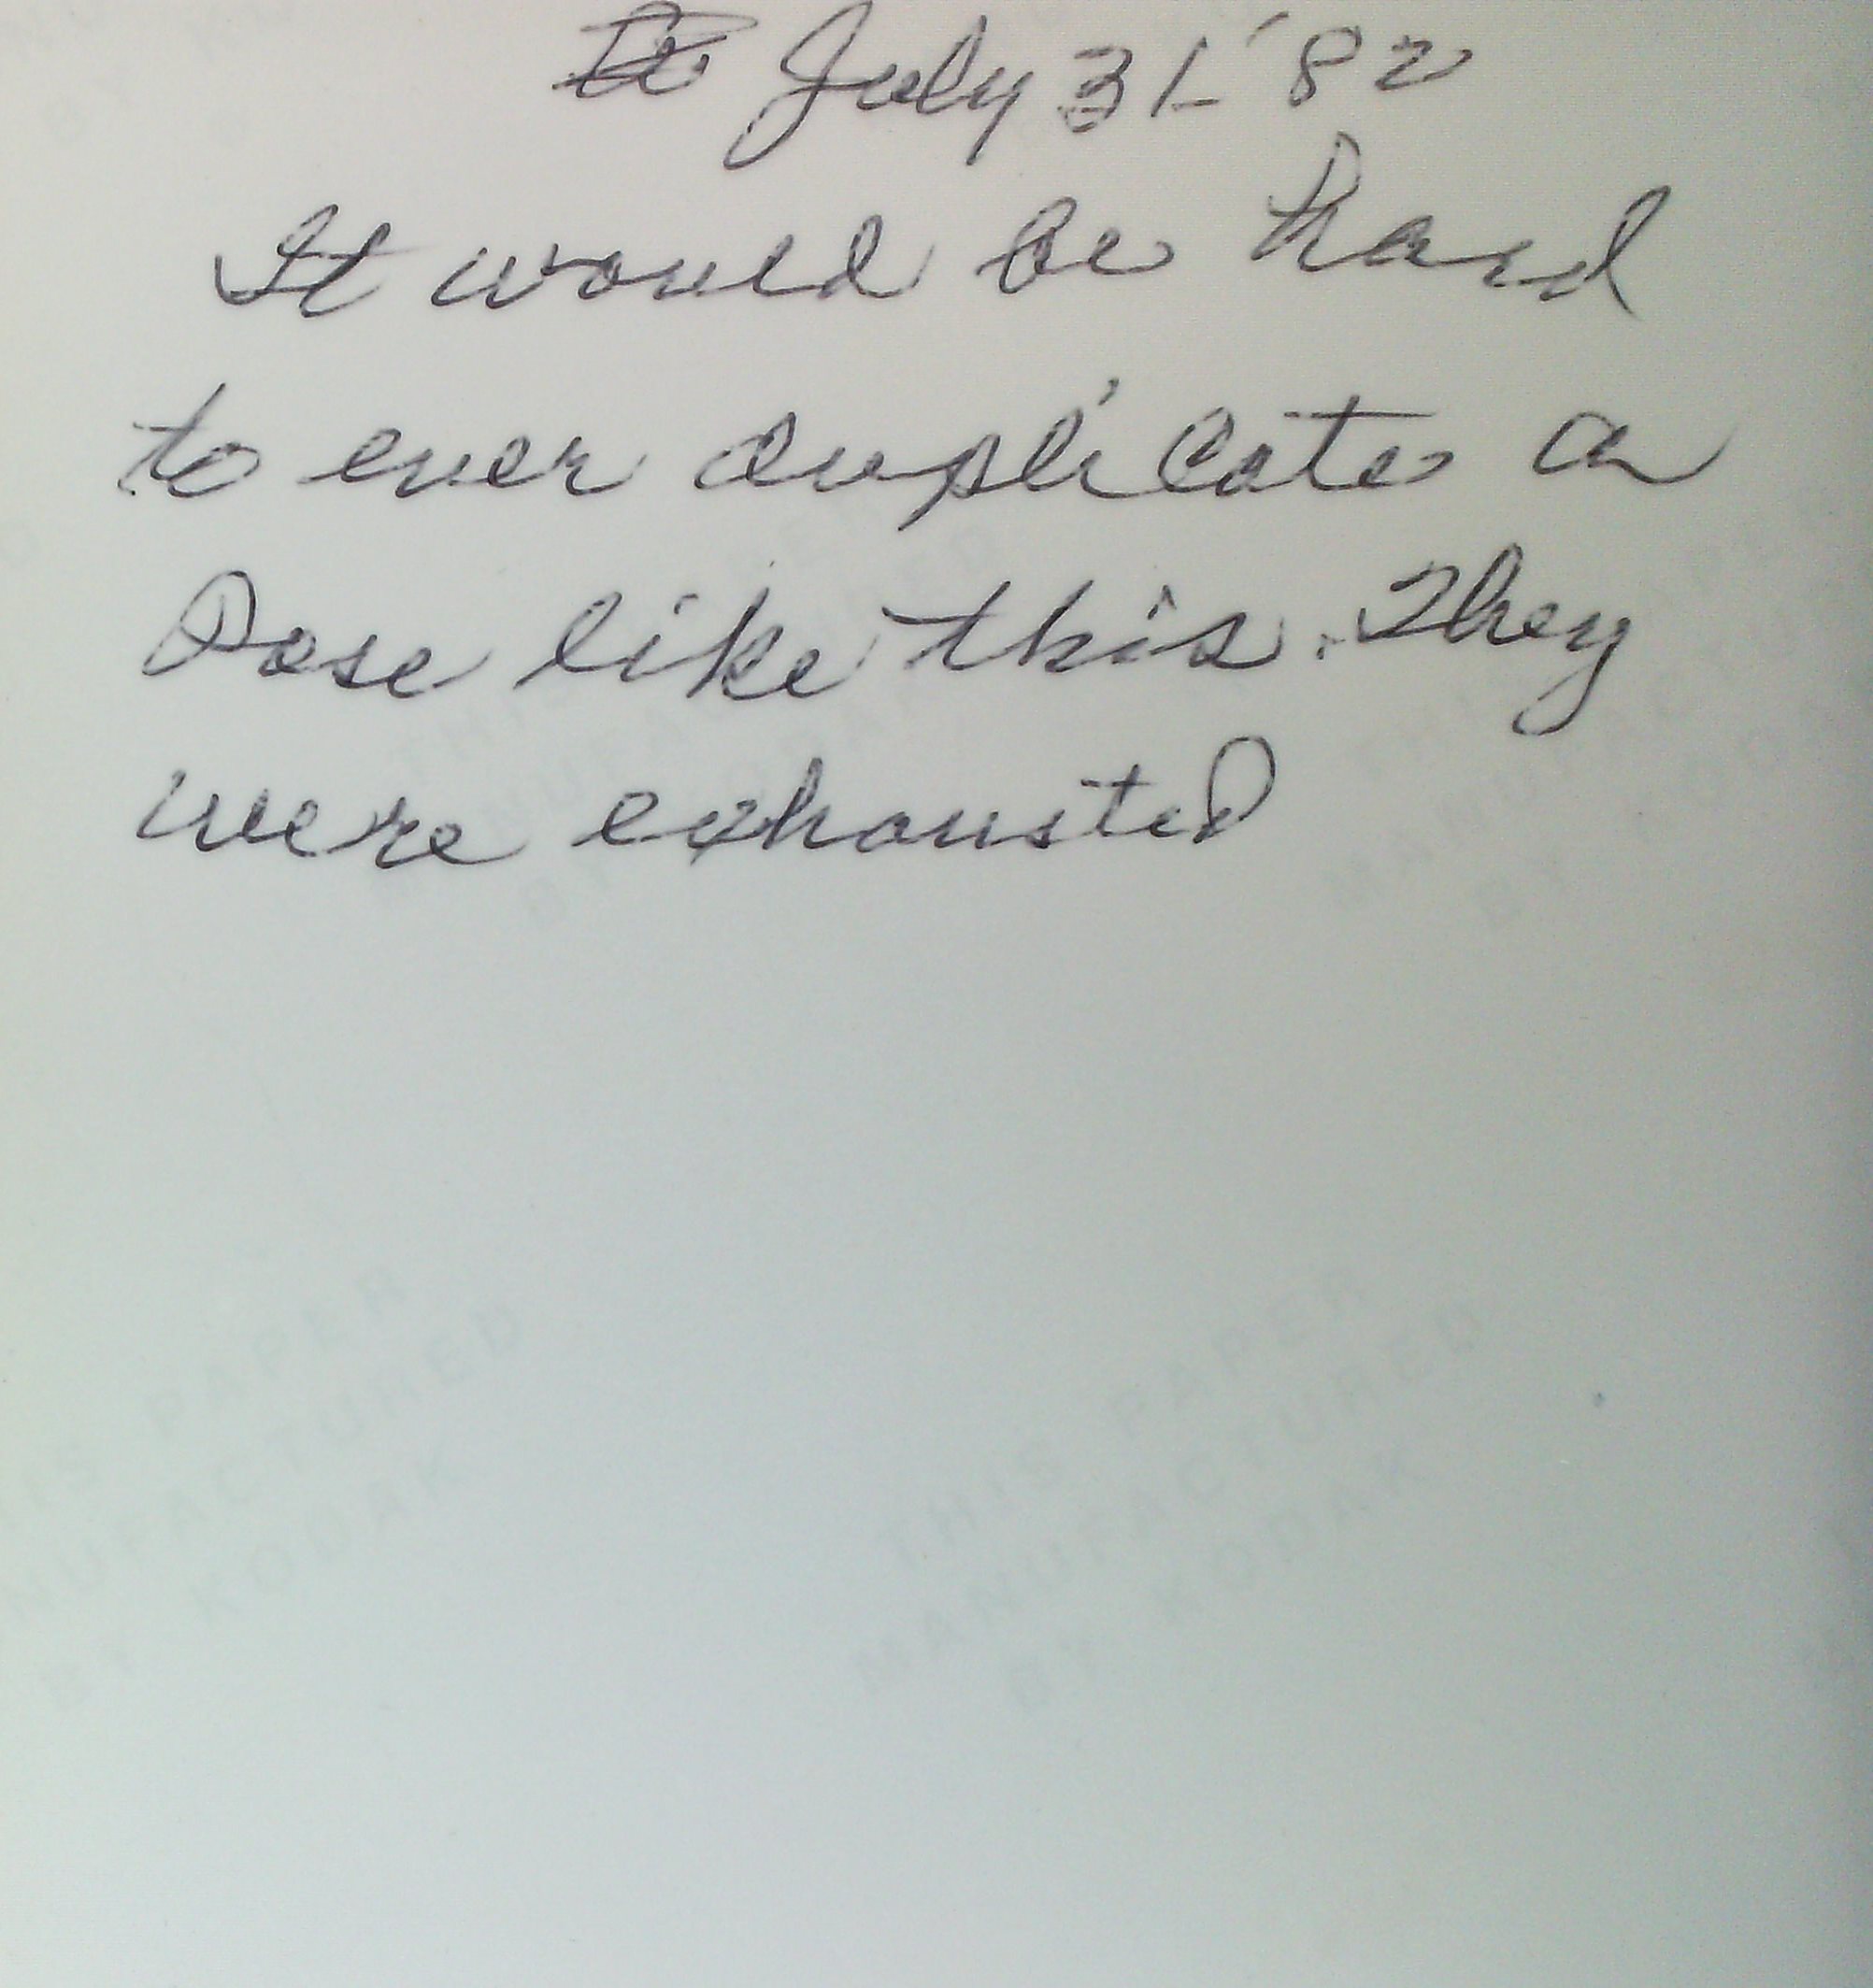 July 31-'82
It would be hard
to ever duplicate a
Pose like this. They
were exhausted
THIS PAPER
MANUFACTURED
BY KODAK
THIS PAPER
MANUFACTURED
BY KODAK
IS PAPER
NUFACTURED
BY KODAK
THIS PAPER
MANUFACTURED
BY KODAK